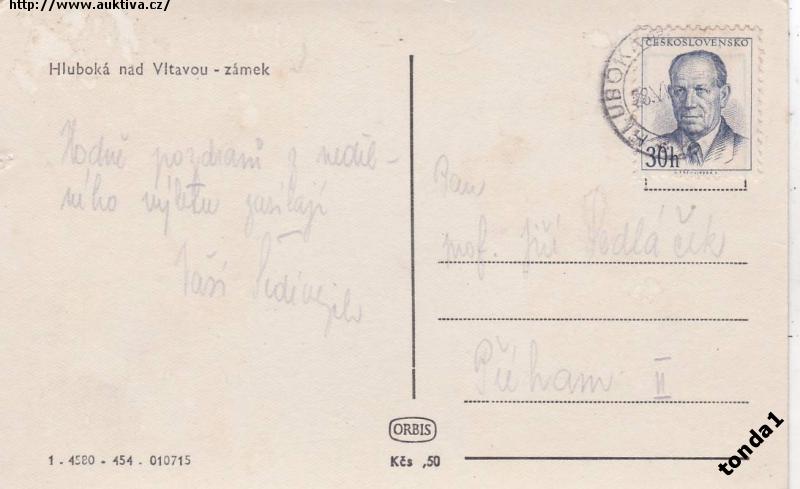 http://www.auktiva.cz/
Hluboká nad Vltavou - zámek
ČESKOSLOVENSKO
HLUBOKÁ
30h
Hodně pozdravů z neděl-
ního výletu zasílají
Vaši
Pan
prof. Jiří Sedláček
II
ORBIS
Kčs ,50
1 - 4580 - 454 - 010715
tonda1